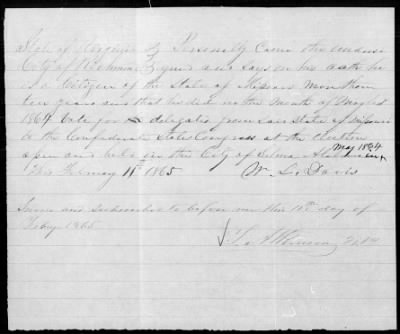 State of Virginia } Personally Came the under
City of Richmond } signed and says on his oath he
is a Citizen of the State of Missouri more than
ten years and that he did in the month of May
1864 vote for delegates from said State of Missouri
to the Confederate States Congress at the election
open and held in the City of Selma Alabama May 1864
This Febuary 11 1865
W. S. Davis
Sworn and subscribed to before me this 11th day of
Feby 1865